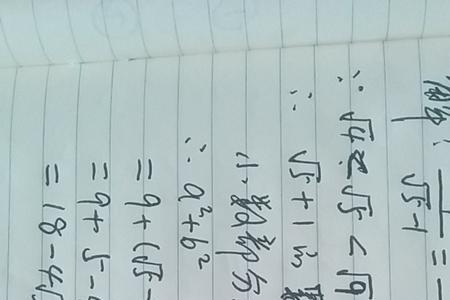 解: 1/(√5-1) =
∵ √4<√5<√9
∴ √5+1的整
小数部分
∴ a²+b²
= 9+(√5-
= 9+5-
= 18-4√